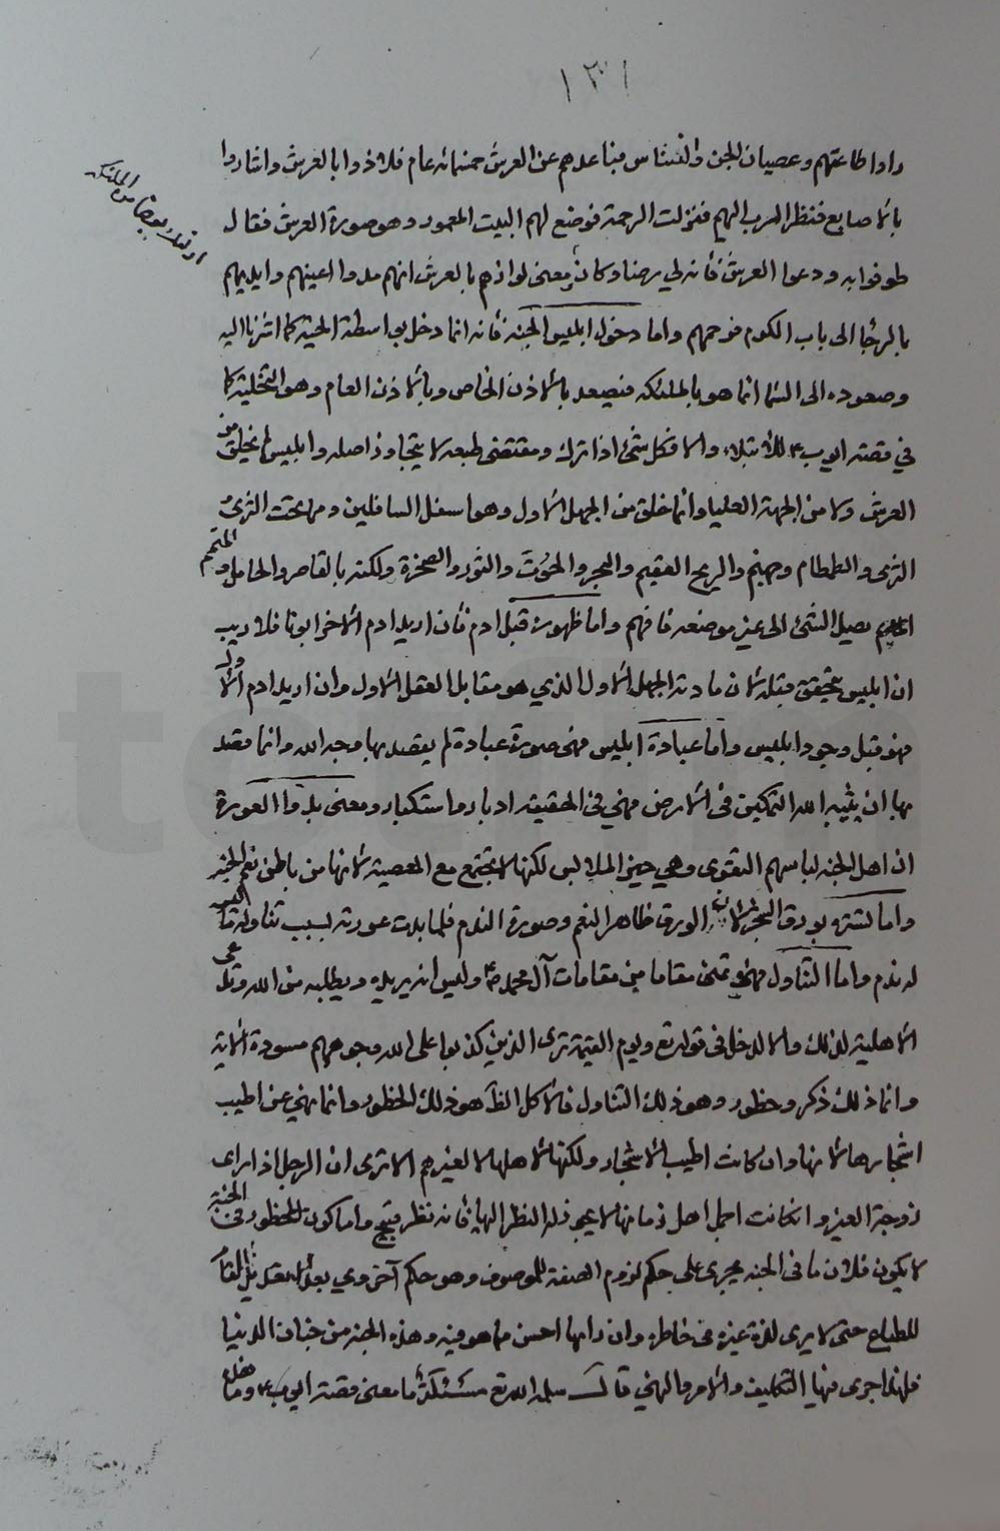 ١٣١
راوا طاعتهم وعصيان الجن والنسناس فباعدهم عن العرش خمسمائه عام فلاذوا بالعرش واشاروا
بالاصابع فنظر الرب اليهم فنزلت الرحمة فوضع لهم البيت المعمور وهو صورة العرش فقال
طوفوا به ودعوا العرش فأنه لي رضا وكان معنى لواذهم بالعرش انهم مدوا اعينهم وايديهم
بالرجا الى باب الكرم فرحمهم واما دخول ابليس الجنه فأنه انما دخل بواسطة الحية كما اشرنا اليه
وصعوده الى السما انما هو بالملئكه فيصعد بالاذن الخاص وبالاذن العام وهو التخلية كما
في قصة ايوب ع للابتلاء والا فكل شئ اذا ترك ومقتضى طبعه لا يتجاوز اصله وابليس لم يخلق من
العرش ولا من الجهة العليا وانما خلق من الجهل الاول وهو اسفل السافلين ومن تحت الثرى
الثرى والطمطام وجهنم والريح العقيم والبحر والحوت والثور والصخرة ولكنه بالقاصر والحامل و المتمم
يصل الشئ الى غير موضعه فافهم واما ظهوره قبل ادم فأن اريد ادم الاخر ابونا فلا ريب
ان ابليس تحقق قبله لان مادته الجهل الاول الذي هو مقابل العقل الاول وان اريد ادم الاول
فهو قبل وجود ابليس واما عبادة ابليس فهي صورة عبادة لم يقصد بها وجه الله وانما قصد
بها ان يثيبه الله التمكين في الارض فهي في الحقيقة ادبار واستكبار ومعنى بدوا العورة
ان اهل الجنه لباسهم التقوى وهي خير الملابس لكنها لا تجتمع مع المعصية لانها من باطن نعم الجنه
واما تستره بورق الجنة لان الورق ظاهر النعم وصورة الندم فلما بدت عورته بسبب تناوله
له ندم واما التناول فهو تمنى مقاما من مقامات آل محمد ع وليس انه يريده ويطلبه من الله و
الاهلية لذلك والا لدخل في قوله تع ويوم القيمة ترى الذين كذبوا على الله وجوههم مسودة الاية
وانما ذلك ذكر وحظور وهو ذلك التناول فالاكل هو ذلك الحظور وانما نهي عن اطيب
اشجارها لانها وان كانت اطيب الاشجار ولكنها لاهلها لا لغيرهم الا ترى ان الرجل اذا راى
زوجة الغير وان كانت اجمل اهل زمانها لا يجوز له النظر اليها فأنه نظر قبيح واما كون المحظور في الجنة
لا يكون فلان ما في الجنه يجري على حكم لزوم الصفة للموصوف وهو حكم آخروي
للطباع حتى لا يرى لذة غيره في خاطره وان راها احسن مما هو فيه وهذه الجنه من جنان الدنيا
فلهذا جرى فيها التكليف والامر والنهي قال سلمه الله تع مسئلة ما معنى قصة ايوب ع وما